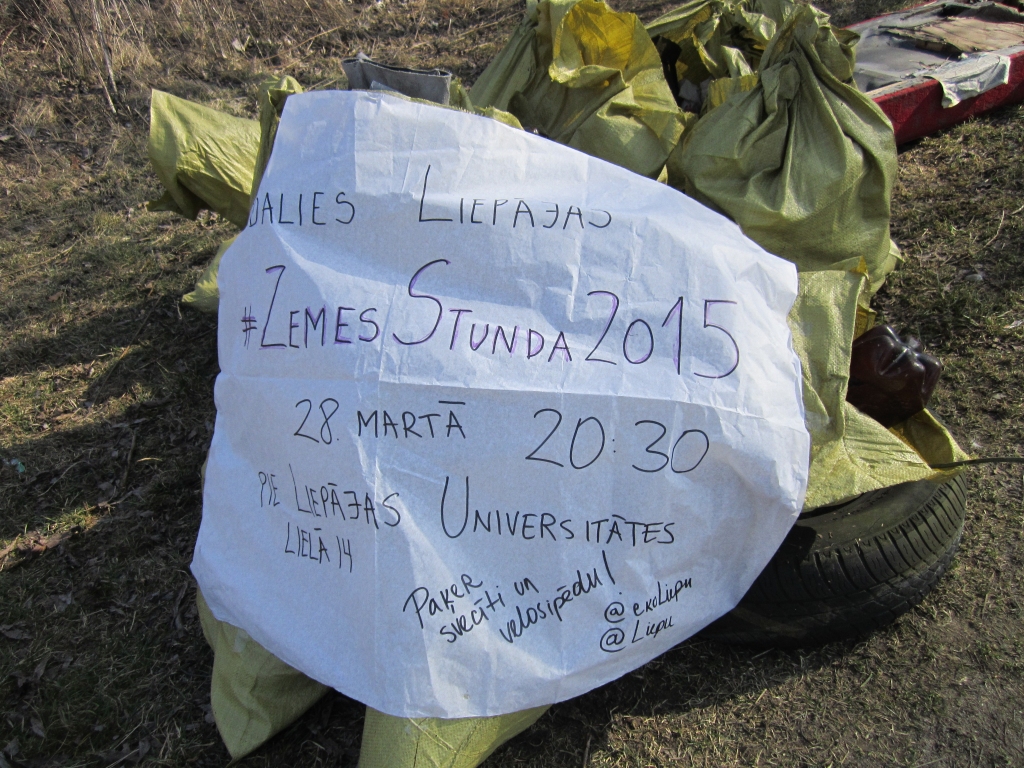 DALIES LIEPĀJAS
#ZEMESSTUNDA2015
28. MARTĀ 20:30
PIE LIEPĀJAS UNIVERSITĀTES
LIELĀ 14
Paķer
svecīti un
velosipēdu!
@ekoLiepu
@Liepu